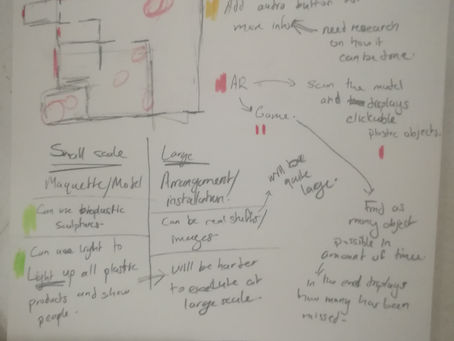 Add audio button for
more info
need research
on how it
can be done.
AR
Scan the model
and displays
clickable
plastic objects.
Game.
Small scale
Maquette/Model
Can use bioplastic
sculptures
Can use light to
Light up all plastic
products and show
people.
Large
Arrangement/
installation.
Can be real stuffs/
images
Will be harder
to at
large scale.
will be
quite
large.
Find as
many object
possible in
amount of time.
In the end displays
how many has been
missed